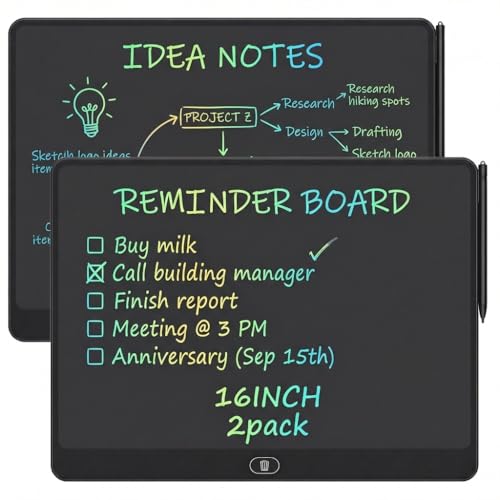 IDEA NOTES
PROJECT Z
Research
Research
hiking spots
Design
Drafting
Sketch logo
Sketcih logo ideas
item
REMINDER BOARD
Buy milk
Call building manager
Finish report
Meeting @ 3 PM
Anniversary (Sep 15th)
16INCH
2pack